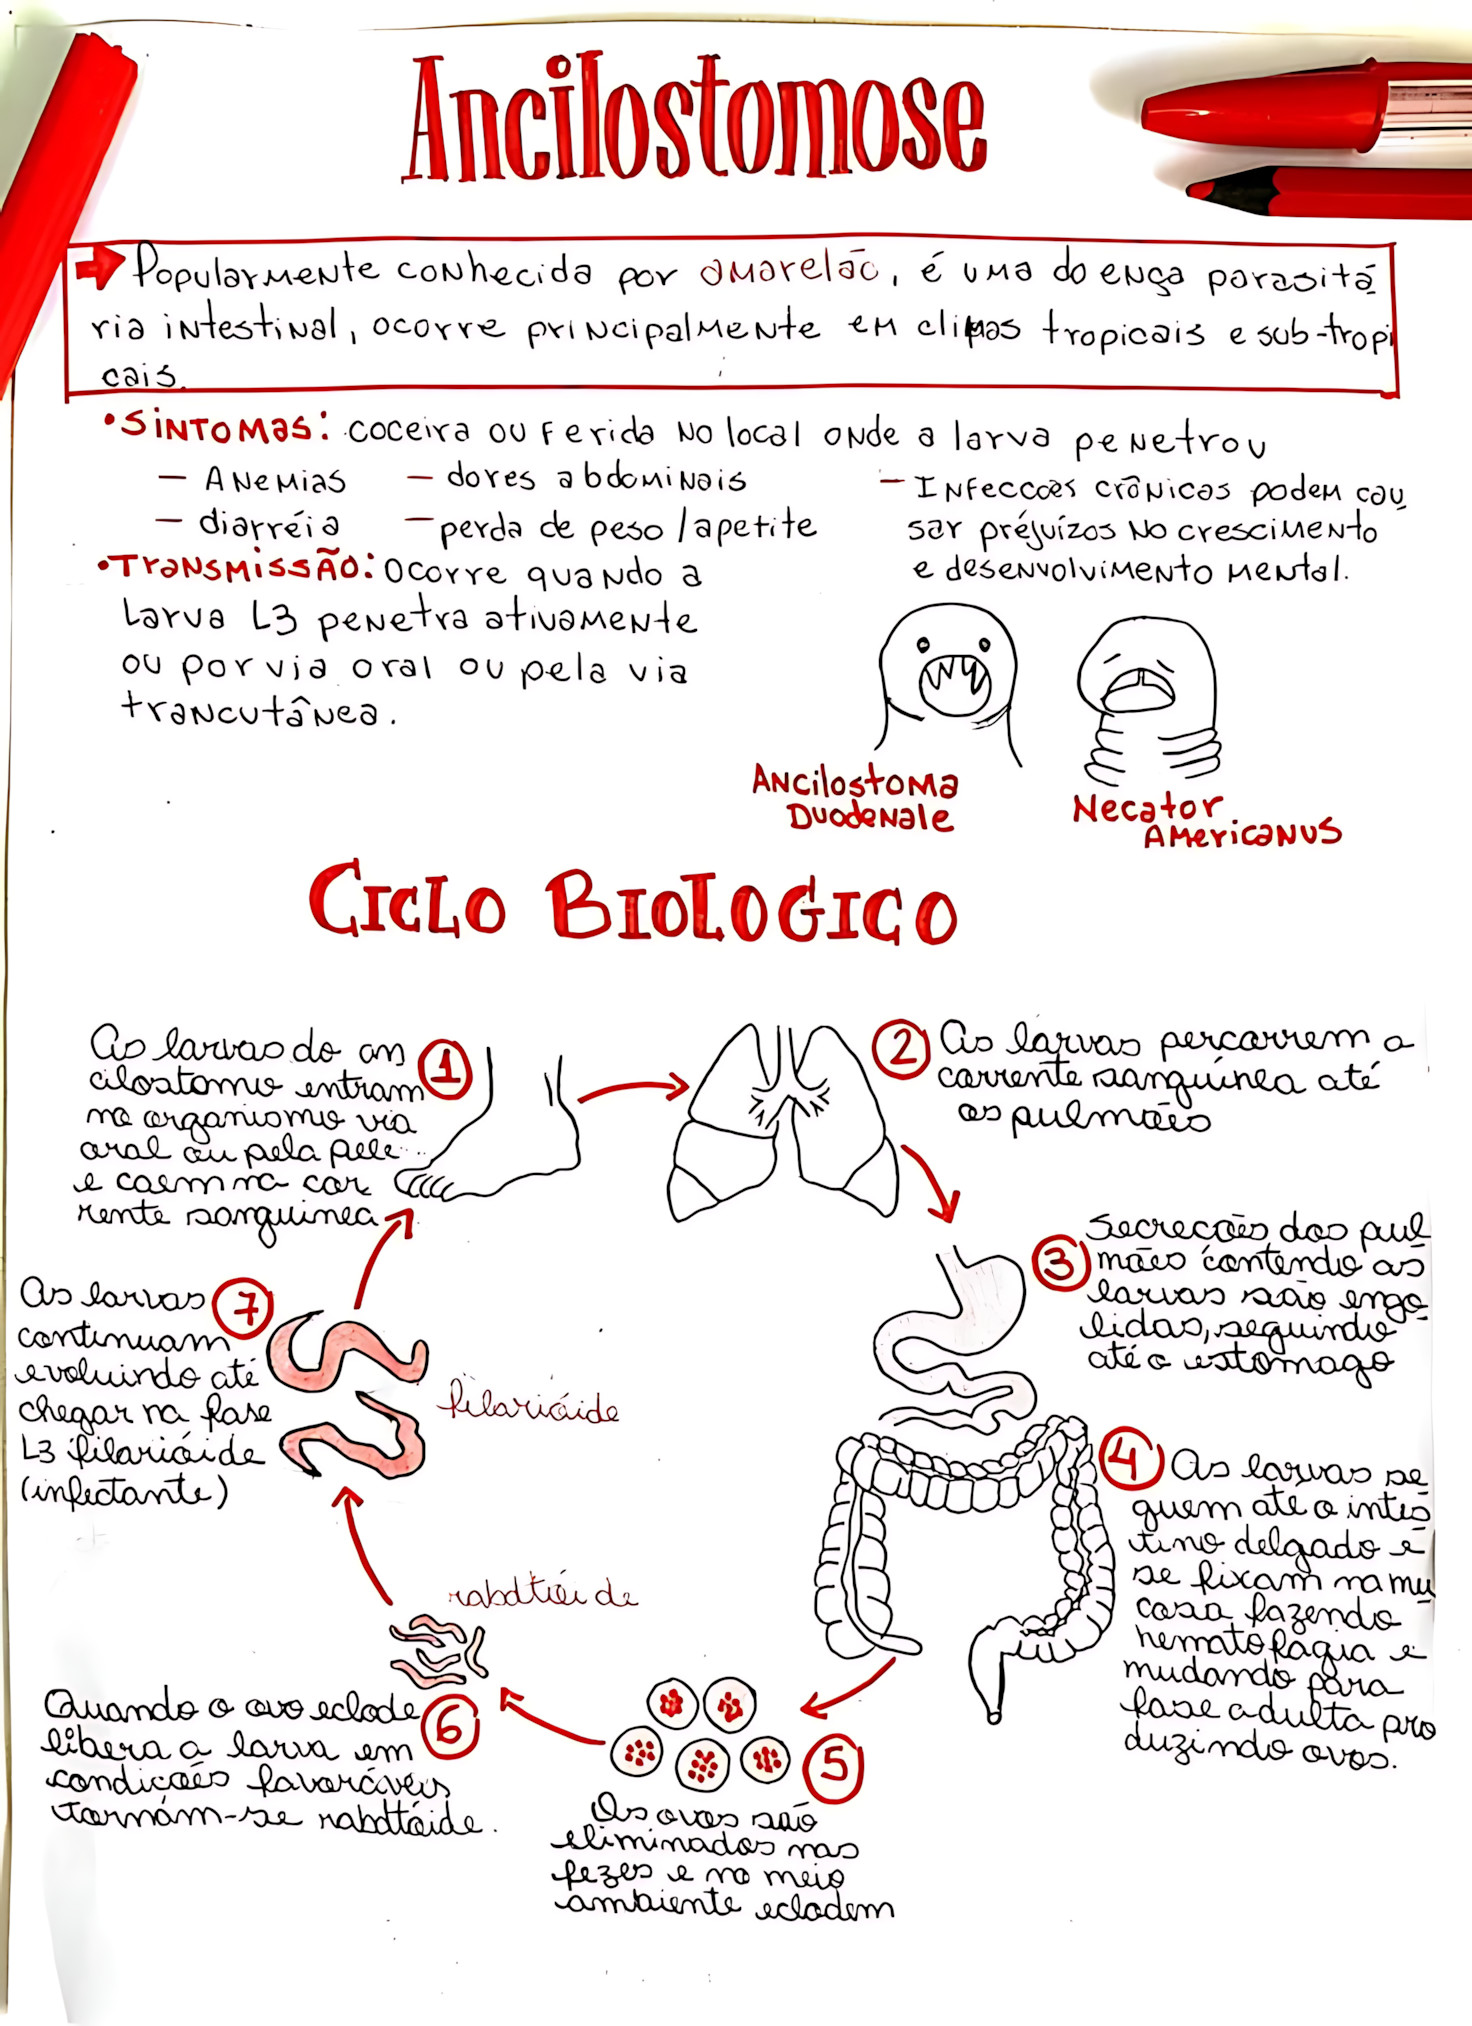 Ancilostomose
Popularmente conhecida por amarelão, é uma doença parasitá
ria intestinal, ocorre principalmente em climas tropicais e sub-tropi
cais.
• Sintomas: coceira ou ferida no local onde a larva penetrou
— Anemias — dores abdominais
— diarréia — perda de peso / apetite
— Infeccões crônicas podem cau
sar préjuízos no crescimento
e desenvolvimento mental.
• Transmissão: Ocorre quando a
Larva L3 penetra ativamente
ou por via oral ou pela via
trancutânea.
Ancilostoma
Duodenale
Necator
Americanus
Ciclo Biologico
1
As larvas do an
cilostomo entram
no organismo via
oral ou pela pele
e caem na cor
rente sanguinea
2
As larvas percorrem a
corrente sanguínea até
os pulmões
3
Secrecões dos pul
mões contendo as
larvas são engo
lidas, seguindo
até o estomago
4
As larvas se
guem até o intes
tino delgado e
se fixam na mu
cosa fazendo
hematofagia e
mudando para
fase adulta pro
duzindo ovos.
5
Os ovos são
eliminados nas
fezes e no meio
ambiente eclodem
rabdtiói de
6
Quando o ovo eclode
libera a larva em
condicões favoráveis
tornam-se rabdtóide.
7
As larvas
continuam
evoluindo até
chegar na fase
L3 filarióide
(infectante)
filarióide